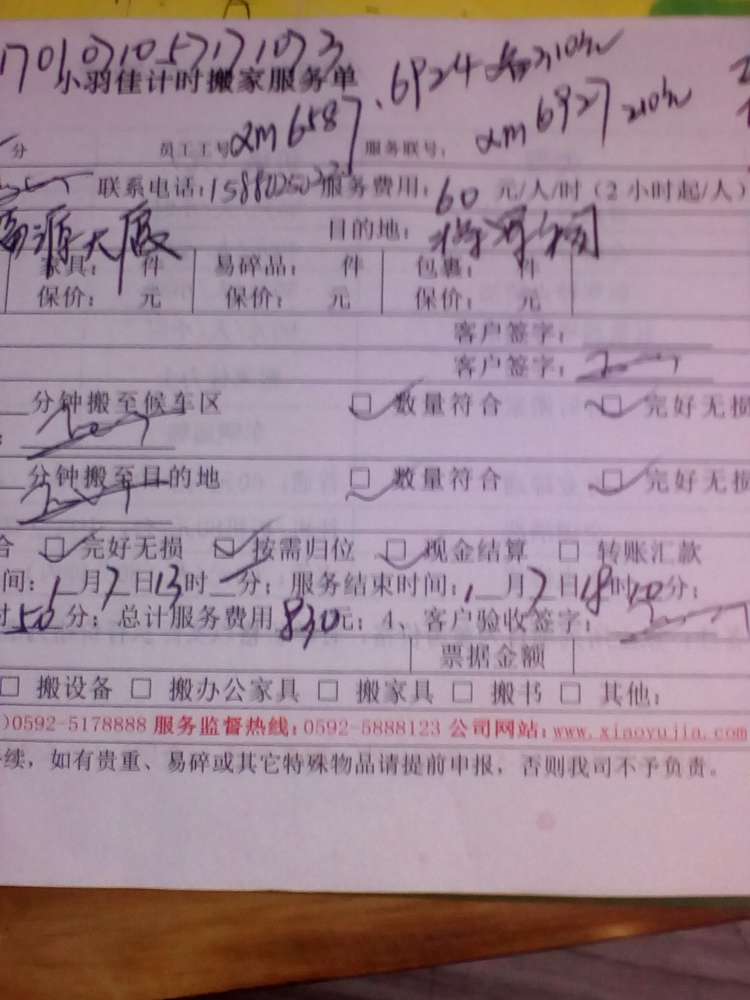 1701071057171073
小羽佳计时搬家服务单
6924 各210元
分 员工工号 XM6587 服务联号: XM6927 210元
联系电话: 服务费用:60元/人/时(2小时起/人)
源大厦 目的地:
家具: 件 易碎品: 件 包裹: 件
保价: 元 保价: 元 保价: 元
客户签字:
客户签字:
分钟搬至候车区 □数量符合 □完好无损
分钟搬至目的地 □数量符合 □完好无损
合 □完好无损 □按需归位 □现金结算 □ 转账汇款
间:1月7日13时 分; 服务结束时间:1月7日18时20分;
时50分; 总计服务费用830元; 4、客户验收签字:
票据金额
□ 搬设备 □ 搬办公家具 □ 搬家具 □ 搬书 □ 其他:
)0592-5178888 服务监督热线:0592-5888123 公司网站:www.xiaoyujia.com
续,如有贵重、易碎或其它特殊物品请提前申报,否则我司不予负责。